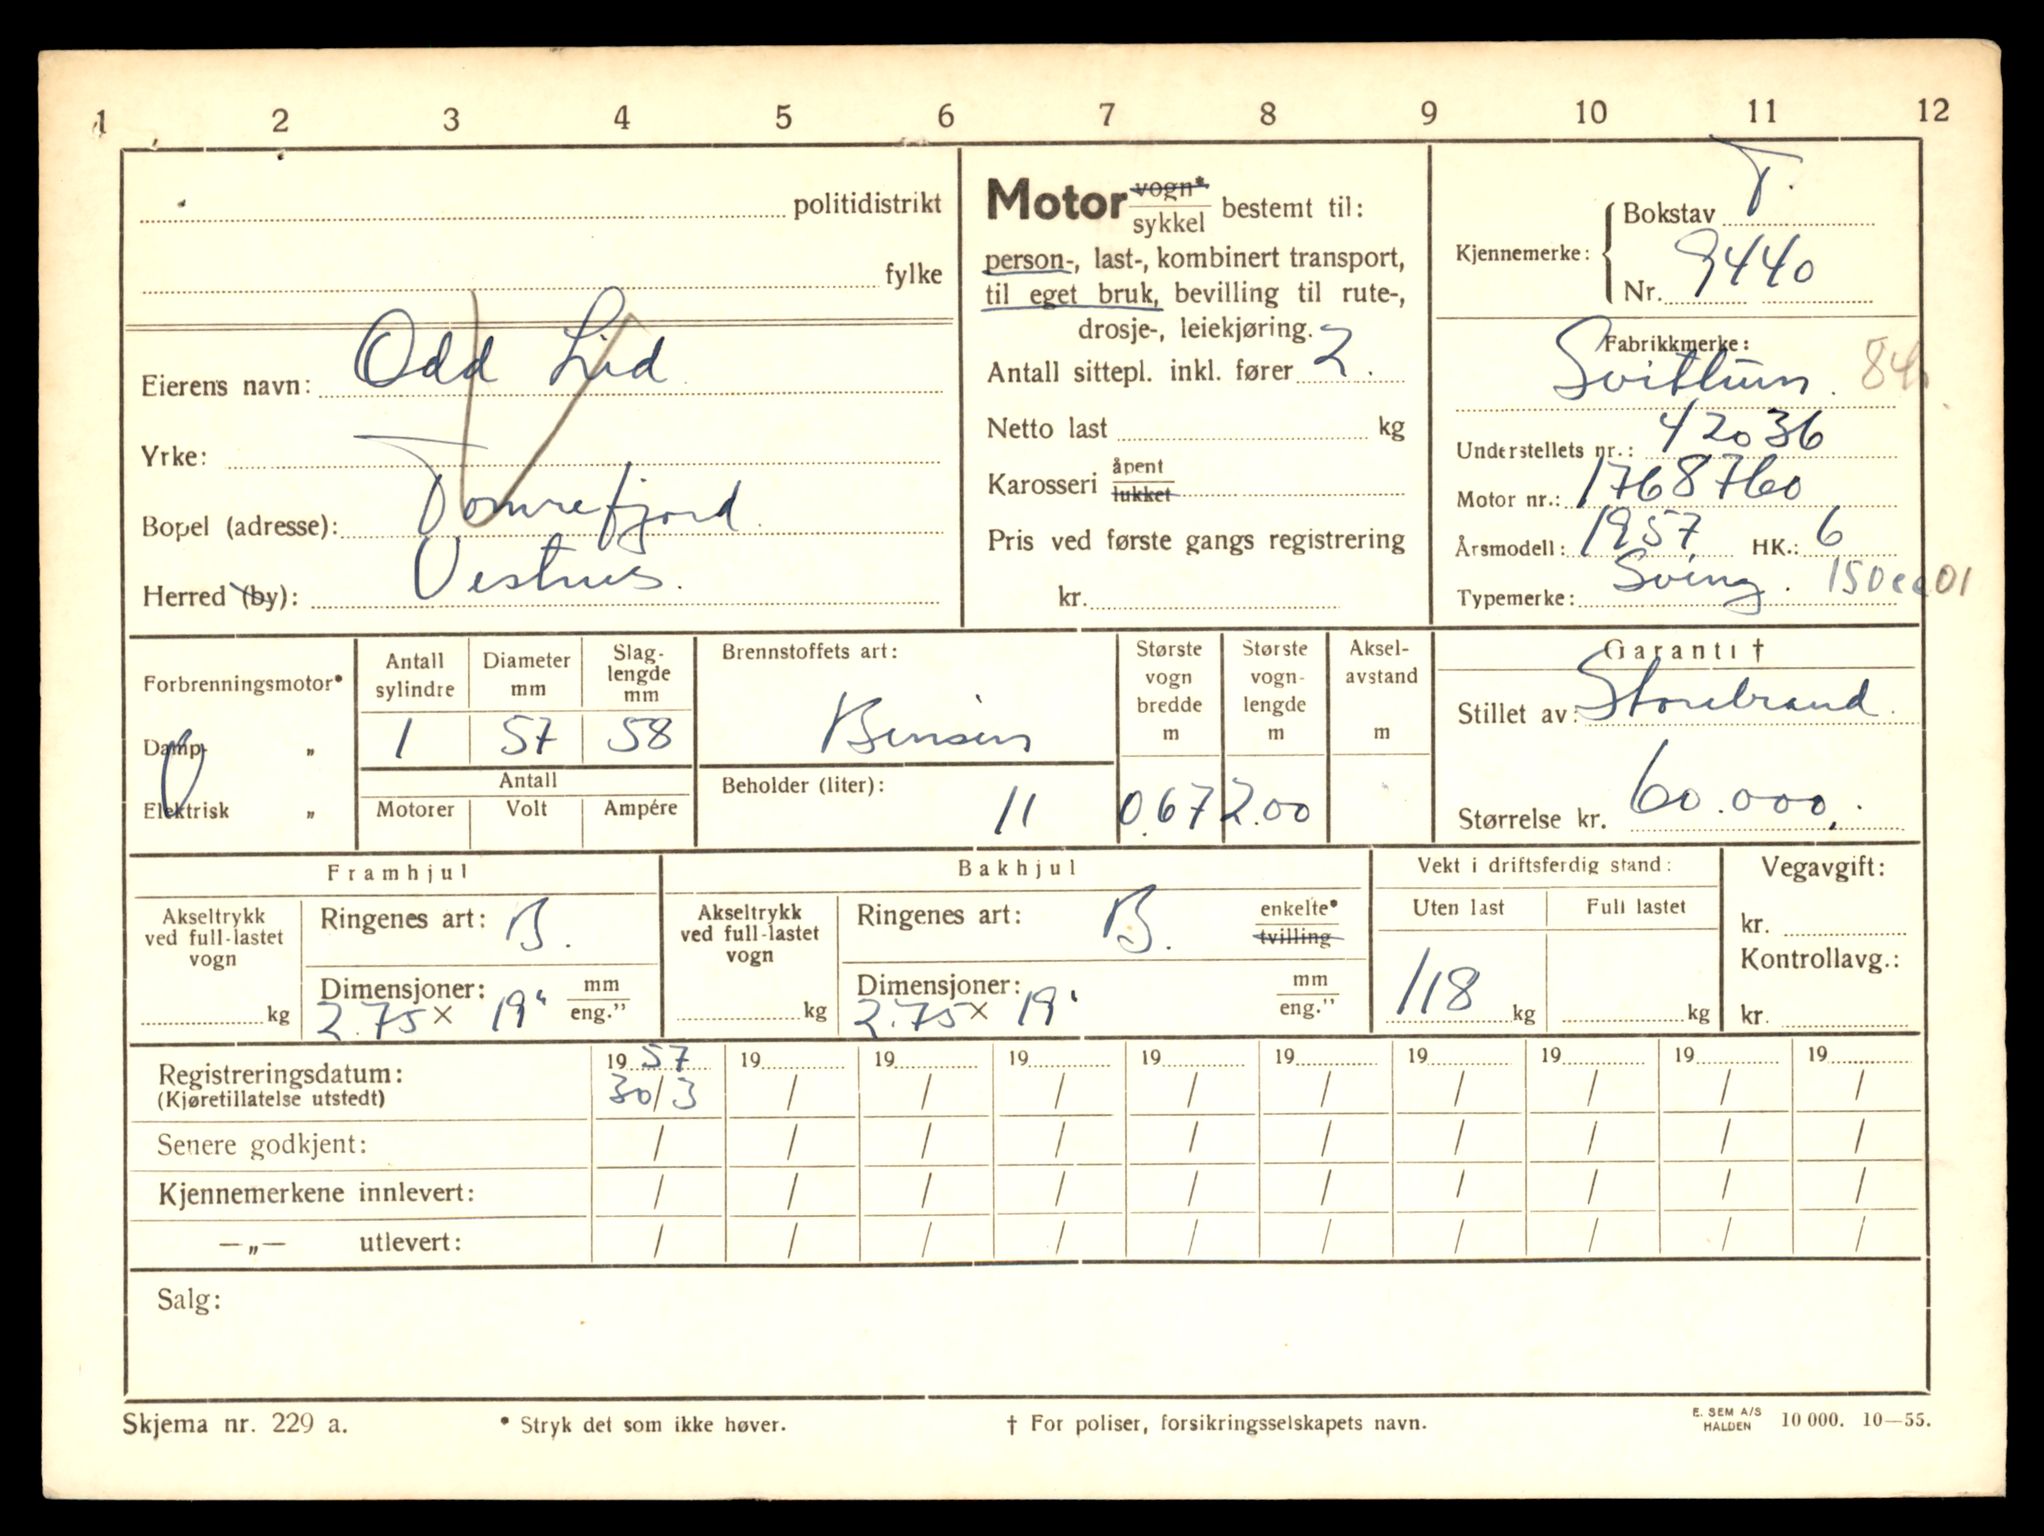 1 2 3 4 5 6 7 8 9 10 11 12
politidistrikt
fylke
Eierens navn: Odd Lid
Yrke:
Bopel (adresse): Tomrefjord
Herred (by): Vestnes.
Motor vogn* sykkel bestemt til:
person-, last-, kombinert transport,
til eget bruk, bevilling til rute-,
drosje-, leiekjøring.
Antall sittepl. inkl. fører 2.
Netto last kg
Karosseri åpent lukket
Pris ved første gangs registrering
kr.
Kjennemerke: Bokstav T.
Nr. 9440
Fabrikkmerke:
Svithun. 84
Understellets nr.: 42036
Motor nr.: 1768760
Årsmodell: 1957 HK.: 6
Typemerke: Sving. 150cc 01
Forbrenningsmotor*
Damp- „
Elektrisk „
Antall sylindre 1
Diameter mm 57
Slag-lengde mm 58
Antall
Motorer Volt Ampére
Brennstoffets art:
Bensin
Beholder (liter): 11
Største vogn bredde m 0.67
Største vogn-lengde m 2.00
Aksel-avstand m
Garanti †
Stillet av: Storebrand.
Størrelse kr. 60.000,.
Framhjul
Akseltrykk ved full-lastet vogn
kg
Ringenes art: B.
Dimensjoner: mm eng."
2.75 x 19"
Bakhjul
Akseltrykk ved full-lastet vogn
kg
Ringenes art: B. enkelte* tvilling
Dimensjoner: mm eng."
2.75 x 19"
Vekt i driftsferdig stand:
Uten last Full lastet
118 kg kg
Vegavgift:
kr.
Kontrollavg.:
kr.
Registreringsdatum: 1957 19 19 19 19 19 19 19 19 19
(Kjøretillatelse utstedt) 30/3 / / / / / / / / /
Senere godkjent: / / / / / / / / / /
Kjennemerkene innlevert: / / / / / / / / / /
—„— utlevert: / / / / / / / / / /
Salg:
Skjema nr. 229 a. * Stryk det som ikke høver. † For poliser, forsikringsselskapets navn. E. SEM A/S HALDEN 10 000. 10—55.